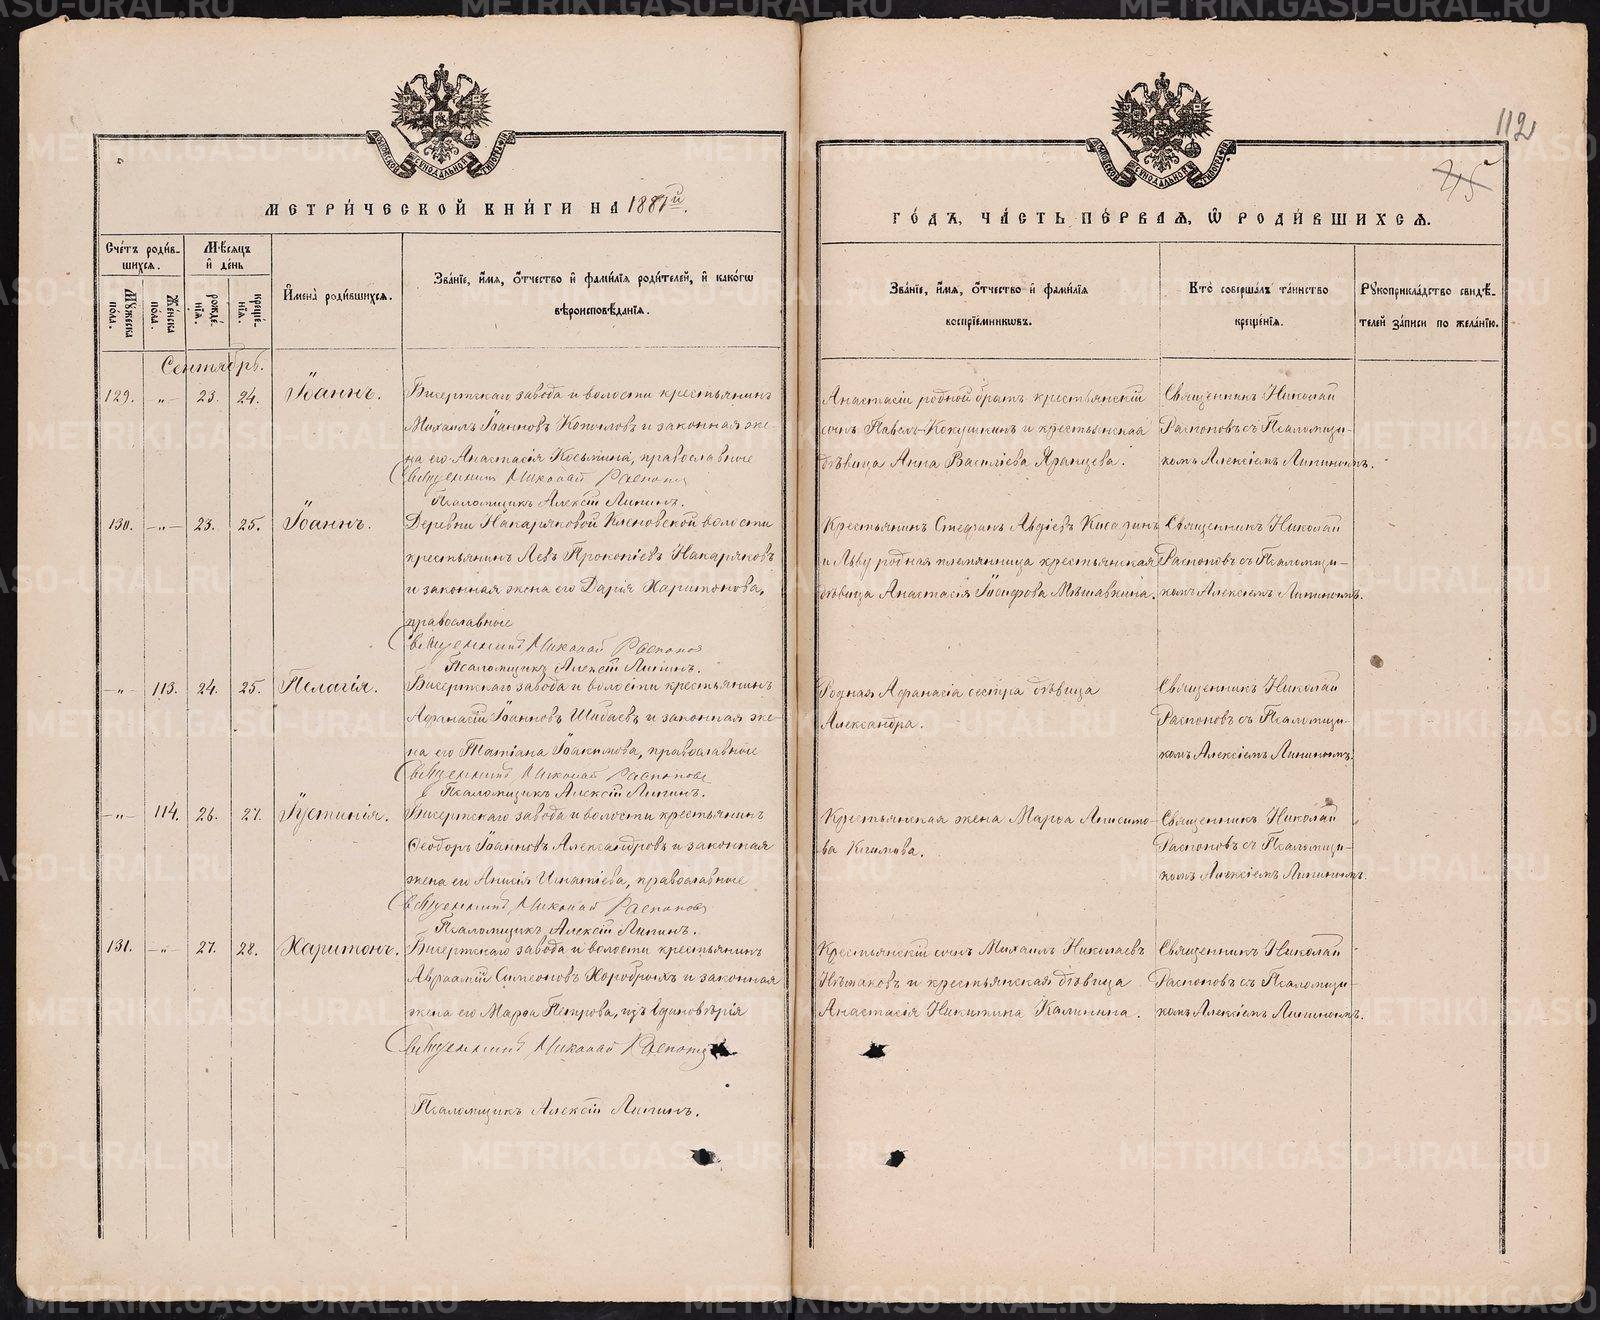 112
45
МЕТРИ́ЧЕСКОЙ КНИ́ГИ НА 1887й.
ГО́ДЪ, ЧА́СТЬ ПЕ́РВАѦ, Ѡ҆ РОДИ́ВШИХСѦ.
Сче́тъ роди́в-
шихсѧ.
Мꙋжеска по́ла.
Же́нска по́ла.
Мѣ́сѧцъ и҆ де́нь
рожде́-
нїѧ.
креще́-
нїѧ.
И҆мена̀ роди́вшихсѧ.
Зва́нїе, и҆́мѧ, ѻ҆́тчество и҆ фами́лїѧ роди́телей, и҆ како́гѡ
вѣроисповѣ́данїѧ.
Зва́нїе, и҆́мѧ, ѻ҆́тчество и҆ фами́лїѧ
воспрїе́мникѡвъ.
Кто̀ соверша́лъ та́инство
креще́нїѧ.
Рꙋкоприкла́дство свидѣ́-
телей за́писи по жела́нїю.
Сентябрь.
129. -"- 23. 24. Іоаннъ.
Бисертскаго завода и волости крестьянинъ
Михаилъ Іоанновъ Копыловъ и законная же-
на его Анастасія Косьмина, православные
Священникъ Николай Распоповъ
Псаломщикъ Алексій Липинъ.
Анастасіи родной братъ крестьянскій
сынъ Павелъ Кокушкинъ и крестьянская
дѣвица Анна Василіева
Священникъ Николай
Распоповъ съ Псаломщи-
комъ Алексіемъ Липинымъ.
130. -"- 23. 25. Іоаннъ.
Деревни Накаряковой Кленовской волости
крестьянинъ Левъ Прокопіевъ Накаряковъ
и законная жена его Дарія Харитонова,
православные
Священникъ Николай Распоповъ
Псаломщикъ Алексій Липинъ.
Крестьянинъ Стефанъ Авдіевъ
и Льву родная племянница крестьянская
дѣвица Анастасія Іосифова Мѣшавкина.
Священникъ Николай
Распоповъ съ Псаломщи-
комъ Алексіемъ Липинымъ.
-"- 113. 24. 25. Пелагія.
Бисертскаго завода и волости крестьянинъ
Афанасій Іоанновъ Шибаевъ и законная же-
на его Татіана Іоакимова, православные
Священникъ Николай Распоповъ
Псаломщикъ Алексій Липинъ.
Родная Афанасія сестра дѣвица
Александра.
Священникъ Николай
Распоповъ съ Псаломщи-
комъ Алексіемъ Липинымъ.
-"- 114. 26. 27. Іустинія.
Бисертскаго завода и волости крестьянинъ
Ѳеодоръ Іоанновъ Александровъ и законная
жена его Анисія Игнатіева, православные
Священникъ Николай Распоповъ
Псаломщикъ Алексій Липинъ.
Крестьянская жена Марѳа Анисимо-
ва
Священникъ Николай
Распоповъ съ Псаломщи-
комъ Алексіемъ Липинымъ.
131. -"- 27. 28. Харитонъ.
Бисертскаго завода и волости крестьянинъ
Авраамій Симеоновъ Хоробрыхъ и законная
жена его Марѳа Петрова, изъ единовѣрія
Священникъ Николай Распоповъ
Псаломщикъ Алексій Липинъ.
Крестьянскій сынъ Михаилъ Николаевъ
и крестьянская дѣвица
Анастасія Никитина Калинина.
Священникъ Николай
Распоповъ съ Псаломщи-
комъ Алексіемъ Липинымъ.
METRIKI.GASO-URAL.RU